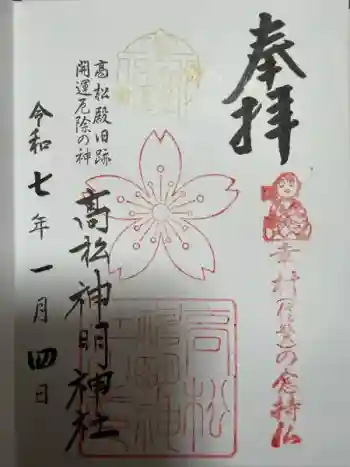 奉拝
幸村(信繁)の念持仏
高松神明神社
高松殿旧跡
開運厄除の神
令和七年一月四日